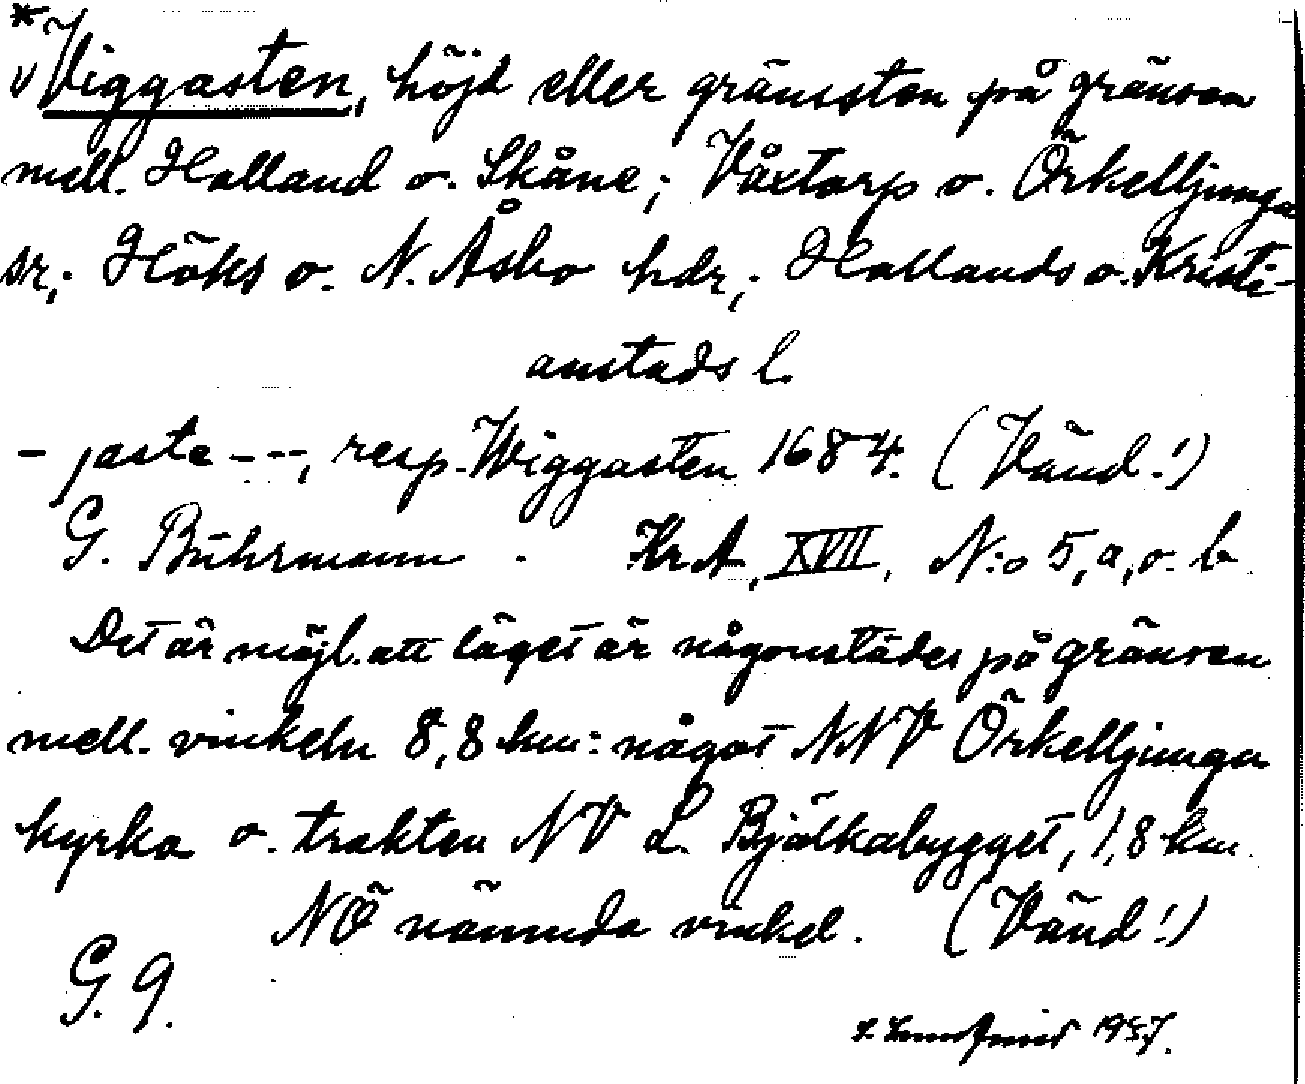 * v Viggasten, höjd eller gränssten på gränsen
mell. Halland o. Skåne; Våxtorp o. Örkelljunga
sr.; Höks o. N. Åsbo hdr.; Hallands o. Kristi-
anstads l.
- jaste ---, resp. Wiggasten 1684. (Vänd!)
G. Buhrmann. KrA, XVII, N:o 5, a, o. b
Det är möjl. att läget är någonstädes på gränsen
mell. vinkeln 8,8 km: något NNV Örkelljunga
kyrka o. trakten NV L. Bjälkabygget, 1,8 km.
NÖ nämnda vinkel. (Vänd!)
G. 9.
1957.